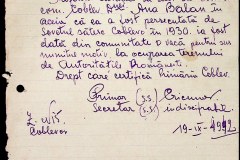 com. Coblev Dnei Ana Balan
în
aceia că ea a fost persecutată de
sovietul sătesc Coblevo în 1930, ia fost
dată din comunitate o vacă pentru sus
numitul motiv la ocuparea terenului
de Autoritățile Românești.
Drept care certifică Primăria Coblev.
Primar (s.s)
Secretar (s.s) indescifrabil.
19-IX-4992